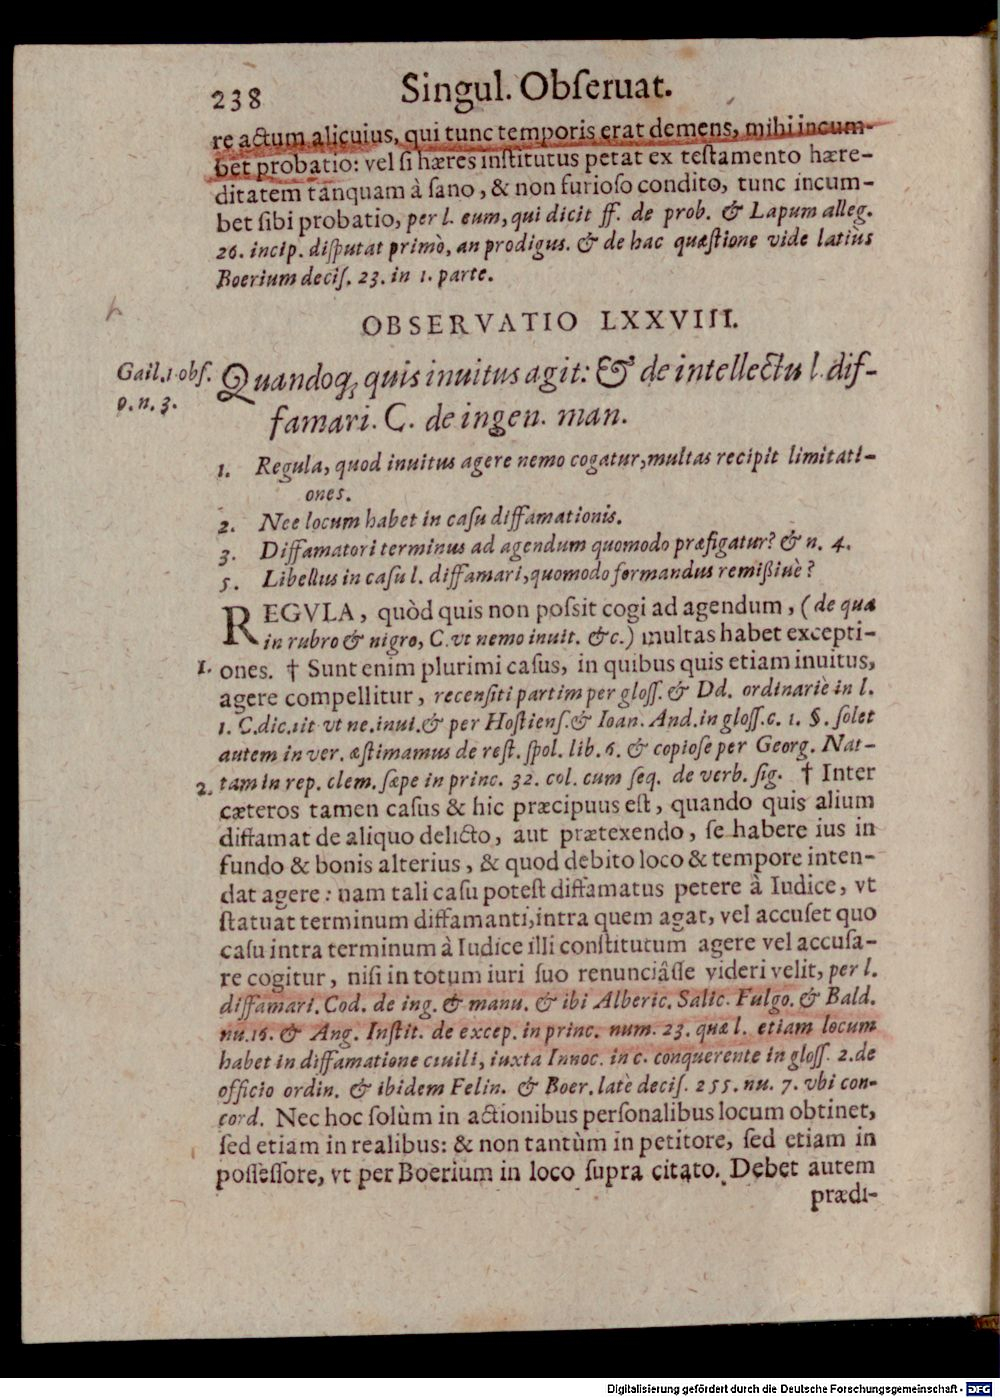 238 Singul. Obſeruat.
re actum alicuius, qui tunc temporis erat demens, mihi incum-
bet probatio: vel ſi hæres inſtitutus petat ex teſtamento hære-
ditatem tanquam à ſano, & non furioſo condito, tunc incum-
bet ſibi probatio, per l. eum, qui dicit ff. de prob. & Lapum alleg.
26. incip. diſputat primò, an prodigus. & de hac quæſtione vide latiùs
Boerium deciſ. 23. in 1. parte.
OBSERVATIO LXXVIII.
Gail. 1. obſ.
9. n. 3.
Quandoq; quis inuitus agit: & de intellectu l. dif-
famari. C. de ingen. man.
1. Regula, quod inuitus agere nemo cogatur, multas recipit limitati-
ones.
2. Nec locum habet in caſu diffamationis.
3. Diffamatori terminus ad agendum quomodo præfigatur? & n. 4.
5. Libellus in caſu l. diffamari, quomodo formandus remißiuè?
REGVLA, quòd quis non poſsit cogi ad agendum, (de qua
in rubro & nigro, C. vt nemo inuit. &c.) multas habet excepti-
1. ones. † Sunt enim plurimi caſus, in quibus quis etiam inuitus,
agere compellitur, recenſiti partim per gloſſ. & Dd. ordinariè in l.
1. C. dic. tit vt ne. inui. & per Hoſtienſ. & Ioan. And. in gloſſ. c. 1. §. ſolet
autem in ver. æſtimamus de reſt. ſpol. lib. 6. & copioſe per Georg. Nat-
2. tam in rep. clem. ſæpe in princ. 32. col. cum ſeq. de verb. ſig. † Inter
cæteros tamen caſus & hic præcipuus eſt, quando quis alium
diffamat de aliquo delicto, aut prætexendo, ſe habere ius in
fundo & bonis alterius, & quod debito loco & tempore inten-
dat agere: nam tali caſu poteſt diffamatus petere à Iudice, vt
ſtatuat terminum diffamanti, intra quem agat, vel accuſet quo
caſu intra terminum à Iudice illi conſtitutum agere vel accuſa-
re cogitur, niſi in totum iuri ſuo renunciâſſe videri velit, per l.
diffamari. Cod. de ing. & manu. & ibi Alberic. Salic. Fulgo. & Bald.
nu. 16. & Ang. Inſtit. de excep. in princ. num. 23. quæ l. etiam locum
habet in diffamatione ciuili, iuxta Innoc. in c. conquerente in gloſſ. 2. de
officio ordin. & ibidem Felin. & Boer. latè deciſ. 255. nu. 7. vbi con-
cord. Nec hoc ſolùm in actionibus perſonalibus locum obtinet,
ſed etiam in realibus: & non tantùm in petitore, ſed etiam in
poſſeſſore, vt per Boerium in loco ſupra citato. Debet autem
prædi-
Digitalisierung gefördert durch die Deutsche Forschungsgemeinschaft - DFG